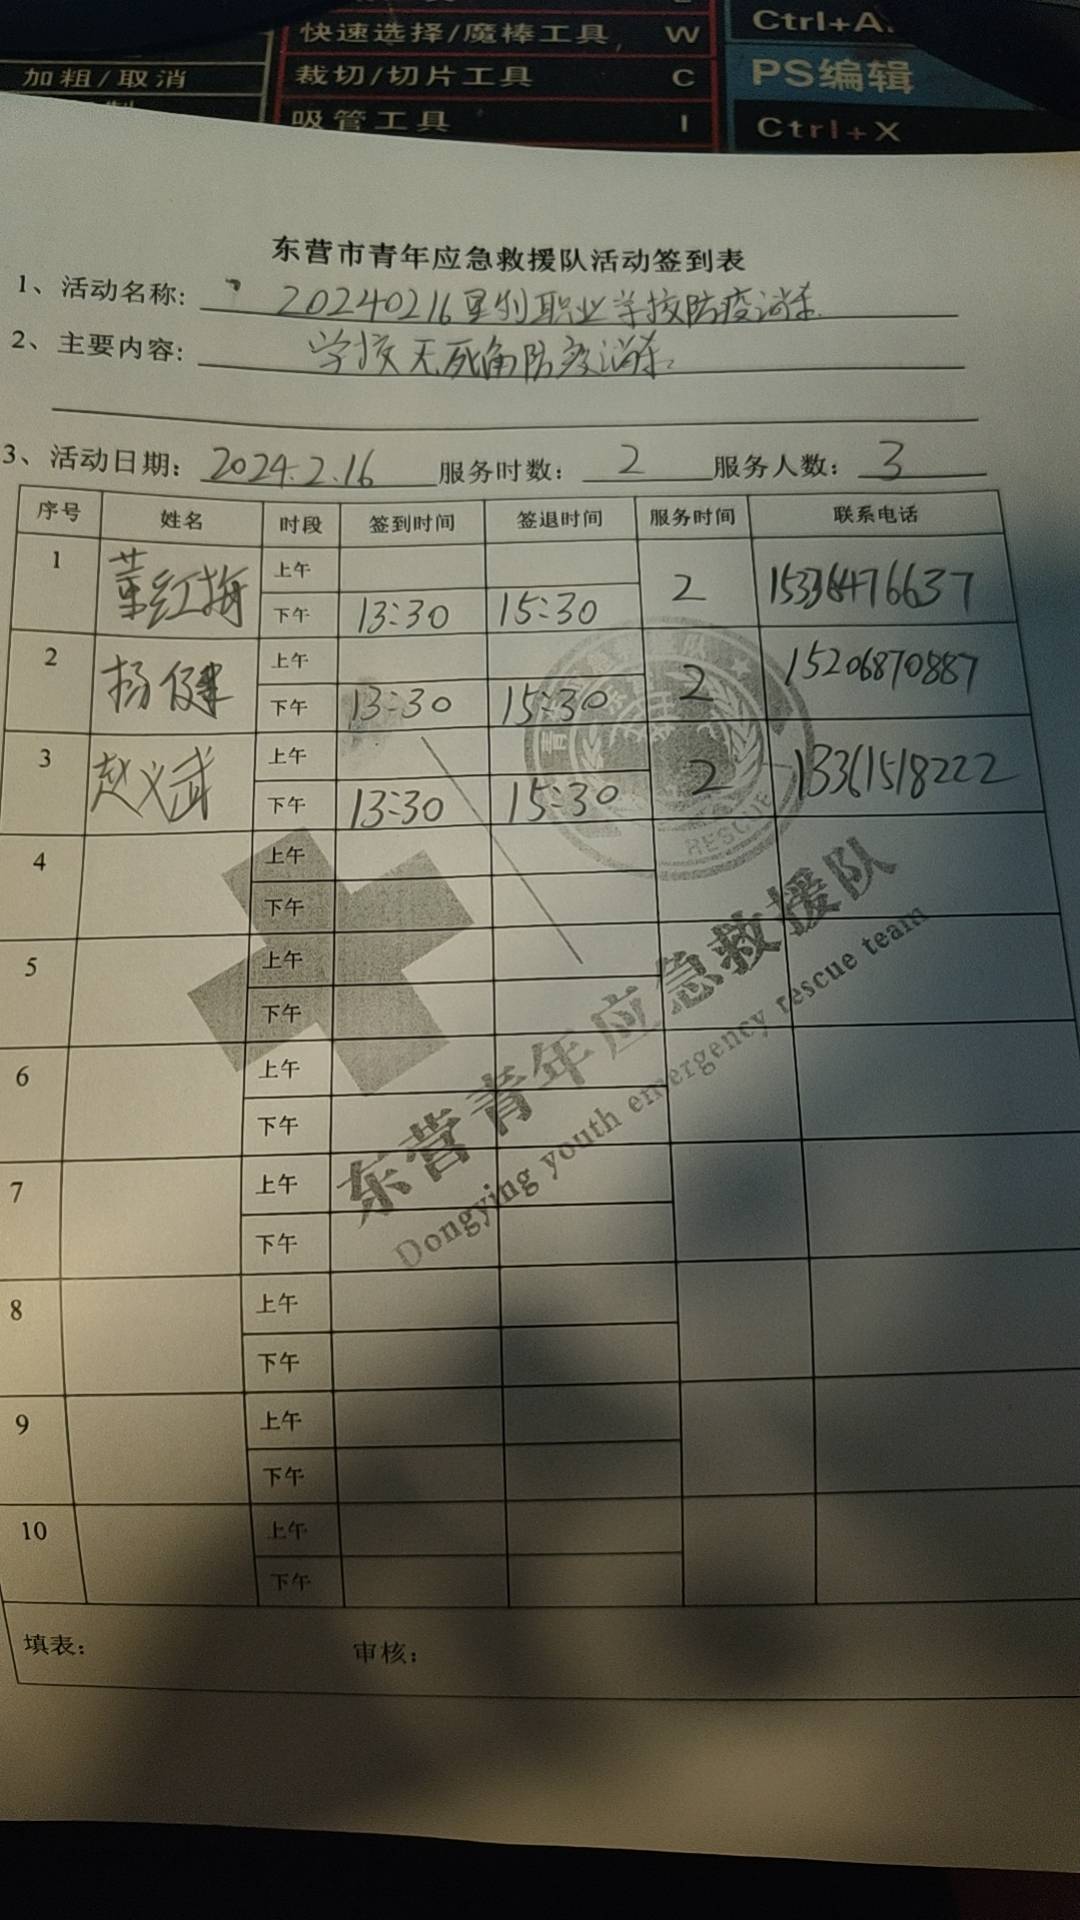 快速选择/魔棒工具 W
Ctrl+A
加粗/取消
裁切/切片工具 C
PS编辑
吸管工具 I
Ctrl+X
东营市青年应急救援队活动签到表
1、活动名称: 20240216星列职业学校防疫消杀
2、主要内容: 学校无死角防疫消杀
3、活动日期: 2024.2.16 服务时数: 2 服务人数: 3
序号 姓名 时段 签到时间 签退时间 服务时间 联系电话
1 董红梅 上午
下午 13:30 15:30 2 15336476637
2 杨健 上午
下午 13:30 15:30 2 15206870887
3 赵义武 上午
下午 13:30 15:30 2 13361518222
4 上午
下午
5 上午
下午
6 上午
下午
7 上午
下午
8 上午
下午
9 上午
下午
10 上午
下午
填表: 审核:
RESCUE
东营青年应急救援队
Dongying youth emergency rescue team